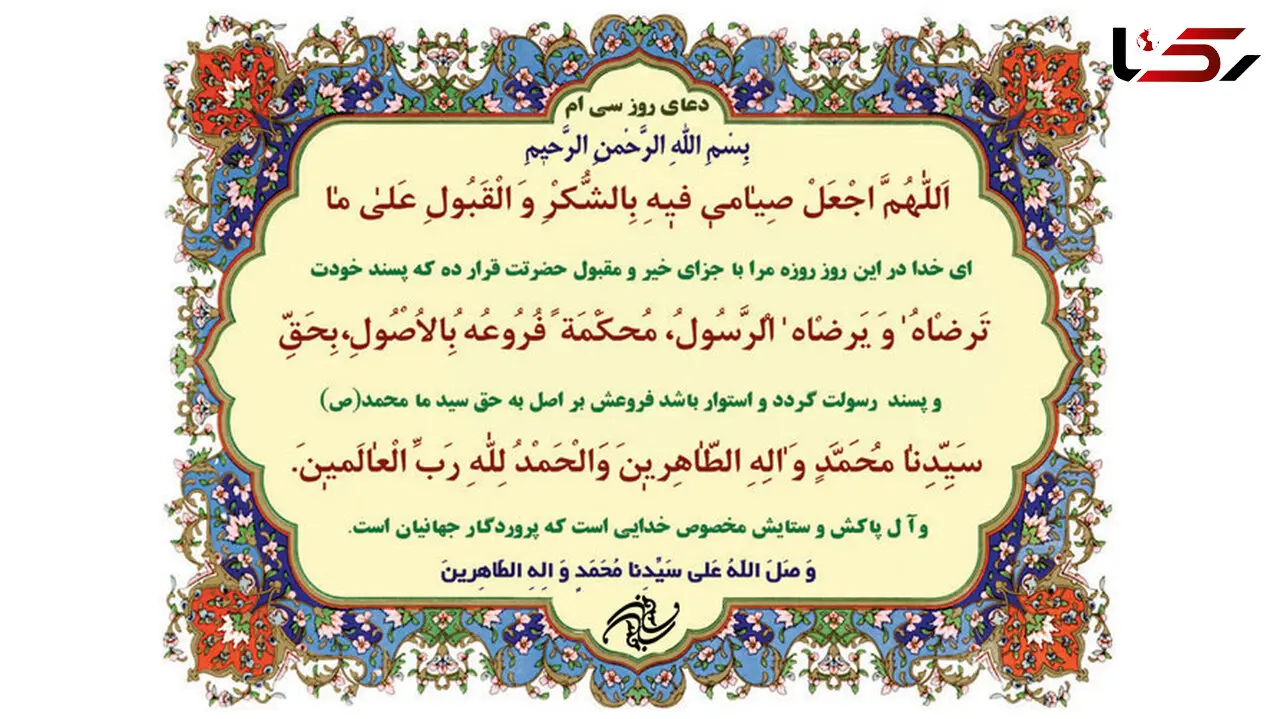 رکنا
دعای روز سی ام
بِسْمِ اللهِ الرَّحْمنِ الرَّحیٖمِ
اَللّٰهُمَّ اجْعَلْ صِیٰامیٖ فیٖهِ بِالشُّکْرِ وَ الْقَبُولِ عَلیٰ مٰا
ای خدا در این روز روزه مرا با جزای خیر و مقبول حضرتت قرار ده که پسند خودت
تَرضْاهُ ٰ وَ یَرضْاه ٰ الْرَّسُولُ، مُحکَمْمَة ً فُرُوعُه بُِالاُصْوُلِ،بِحَقِّ
و پسند رسولت گردد و استوار باشد فروعش بر اصل به حق سید ما محمد(ص)
سَیِّدِنٰا مُحَمَّدٍ وَ اٰلِهِ الطّٰاهِریٖنَ وَالْحَمْدُ لِلّٰهِ رَبِّ الْعٰالَمیٖنَ.
و آ ل پاکش و ستایش مخصوص خدایی است که پروردگار جهانیان است.
وَ صَلَ اللّهُ عَلی سَیِّدِنا مُحَمَدٍ وَ الِهِ الطّاهِرینَ